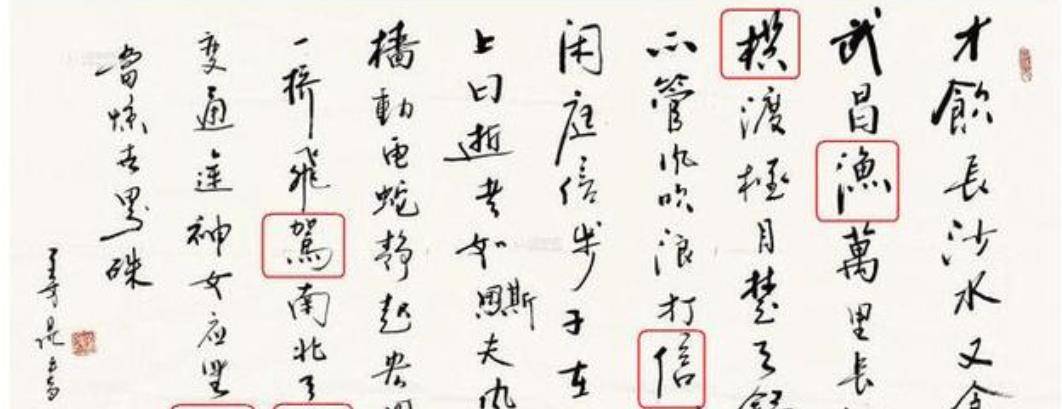 才飲長沙水又食
武昌漁萬里長
渡極目楚天舒
不管风吹浪打信
闲庭信步子在
上曰逝者如斯夫风
檣動龟蛇靜起宏圖
一橋飛駕南北天
變通途神女应無
當惊世界硃